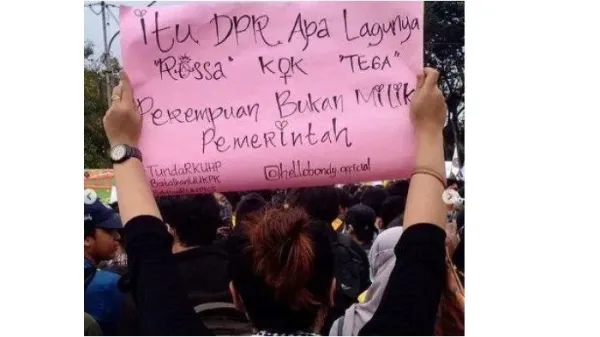 itu DPR Apa Lagunya
"Rossa" KOK "TEGA"
Perempuan Bukan Milik
Pemerintah
#TundaRKUHP
@hellobondy.official